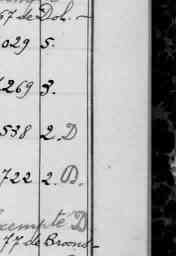 67 de Dol. -
029 5.
269 3.
538 2. D
722 2. D.
exempté D
77 de Broons -